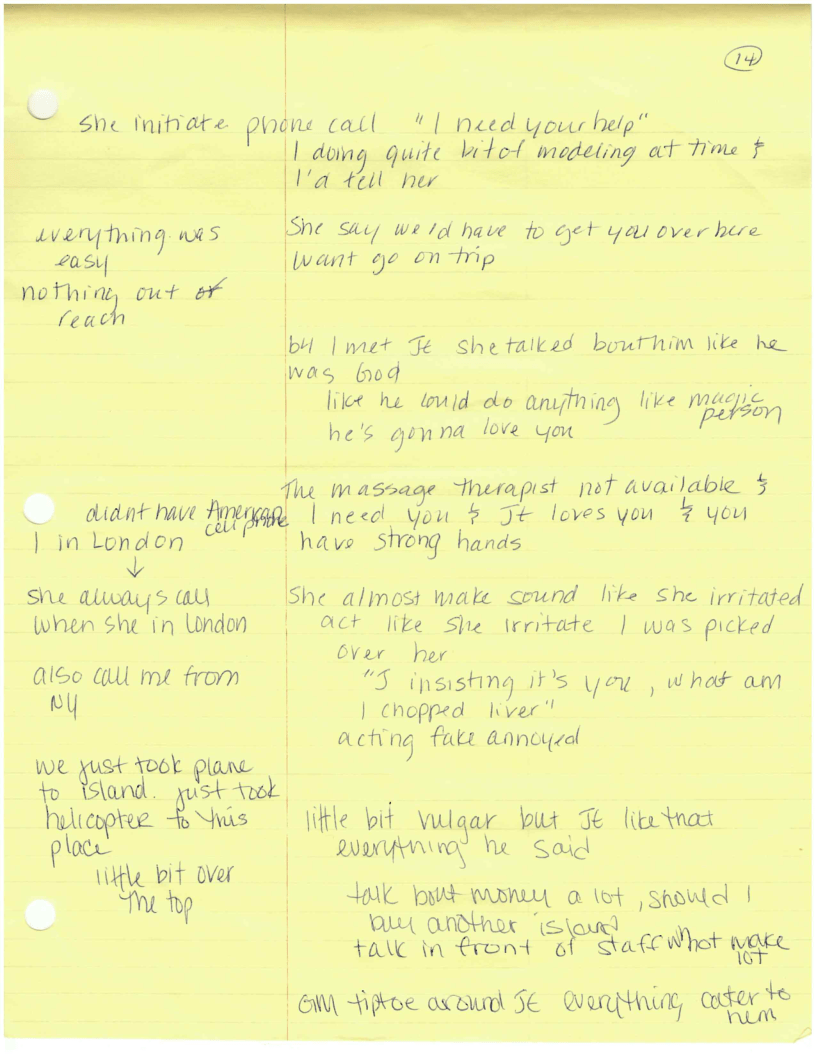 14
She initiate phone call "I need your help"
I doing quite bit of modeling at time &
I'd tell her
everything was
easy
nothing out of
reach
She say we'd have to get you over here
want go on trip
b4 I met JE she talked bout him like he
was God
like he could do anything like magic
person
he's gonna love you
didnt have American
cell phone
I in London
↓
she always call
when she in London
also call me from
NY
The massage therapist not available &
I need you & JE loves you & you
have strong hands
She almost make sound like she irritated
act like she irritate I was picked
over her
"J insisting it's you, what am
I chopped liver"
acting fake annoyed
we just took plane
to island. just took
helicopter to this
place
little bit over
the top
little bit vulgar but JE like that
everything he said
talk bout money a lot, should I
buy another island
talk in front of staff what make
lot
GM tiptoe around JE everything cater to
hem